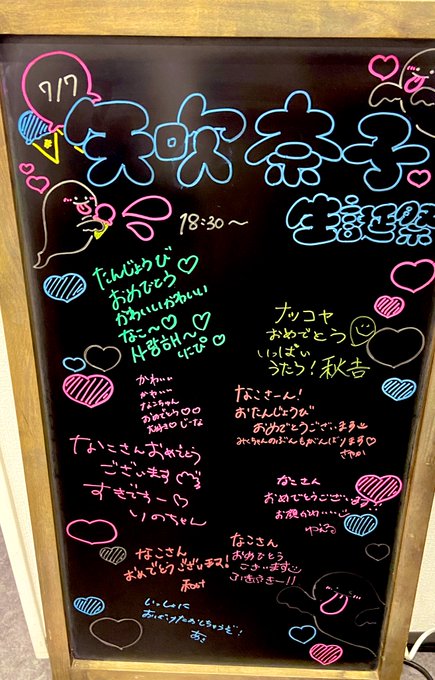 7/7
矢吹奈子
生誕祭
18:30〜
たんじょうび
おめでとう♡
かわいいかわいい
なこ〜♡
사랑해〜♡
りこぴ♡
ナッコヤ
おめでとう
いっぱい
うたう!秋吉
かわいい
かわいい
なこちゃん
おめでとう♡♡
じーな
なこさーん!
おたんじょうび
おめでとうございます
みくちゃんのぶんもがんばります♡
さやか
なこさんおめでとう
ございます♡
すきですー♡
りのちゃん
なこさん
おめでとうございます
なこさん
おめでとうございます!
なこさん
おめひとう
ございます
いっしょに